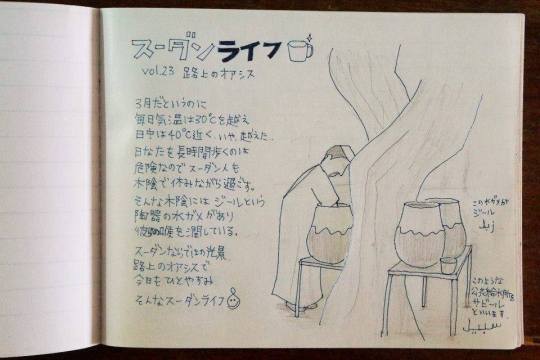 スーダンライフ
vol.23 路上のオアシス
3月だというのに
毎日気温は30℃を越え
日中は40℃近く、いや、越えた。
日なたを長時間歩くのは
危険なのでスーダン人も
木陰で休みながら過ごす。
そんな木陰には ジールという
陶器の水がめがあり
喉を潤している。
スーダンならではの光景
路上のオアシスで
今日もひとやすみ
そんなスーダンライフ
この水がめが
ジール
زير
このような
公共給水所を
サビール
といいます。
سبيل